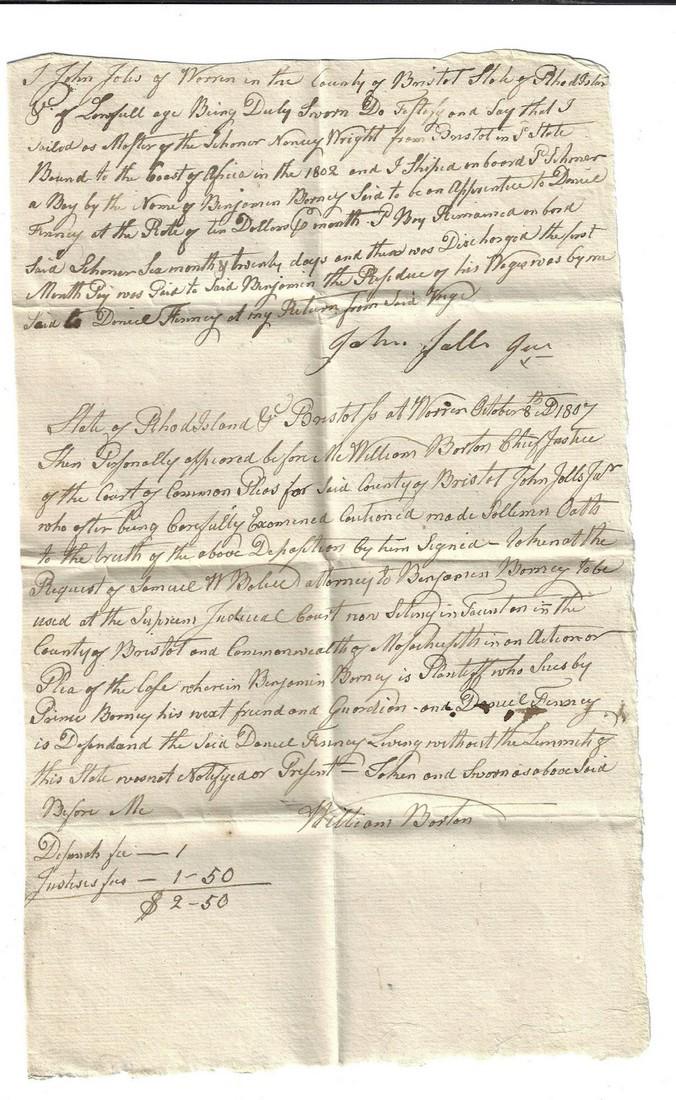 I John Jols of Worren in the County of Bristol State of Rhod Islan
&c of Lawfull age Being Duly Sworn Do Testify and Say that I
sailed as Master of the Schoner Nancy Wright from Bristol in Sd State
Bound to the Coast of Africa in the 1802 and I Shiped on board Sd Schoner
a Boy by the Name of Benjamin Borney Said to be an Apprentice to Daniel
Finney at the Rate of ten Dollars month Sd Boy Remained on bord
Said Schoner Sea month & twenty days and then was Discharged the first
Month Pay was Paid to Said Benjamin the Residue of his Wages was by me
to Daniel Finney at my Return from Said Voge
John Jalls Jur
State of Rhod Island &c Bristol Ss at Worren October 8th AD 1807
Then Personally appeared before Me William Borton Chief Justice
of the Court of Common Pleas for Said County of Bristol John Jolls Jur
who after being Carefully Examened Cautioned made Sollemn Oath
to the truth of the above Deposition by him Signed — Taken at the
Request of Samuel W attorney to Benjamin Borney to be
used at the Suprem Judecial Court now Siting in Taunton in the
County of Bristol and Commonwealth of Massachusetts in an Action or
Plea of the Case wherein Benjamin Borney is Plantiff who Sues by
Prime Borney his next friend and Guardian and Daniel Finney
is Defendand the Said Daniel Finney Living without the Limmits of
this State was not Notifyed or Present — Taken and Sworn as above Said
Before Me
William Borton
fee — 1
Justises fees — 1-50
$ 2-50